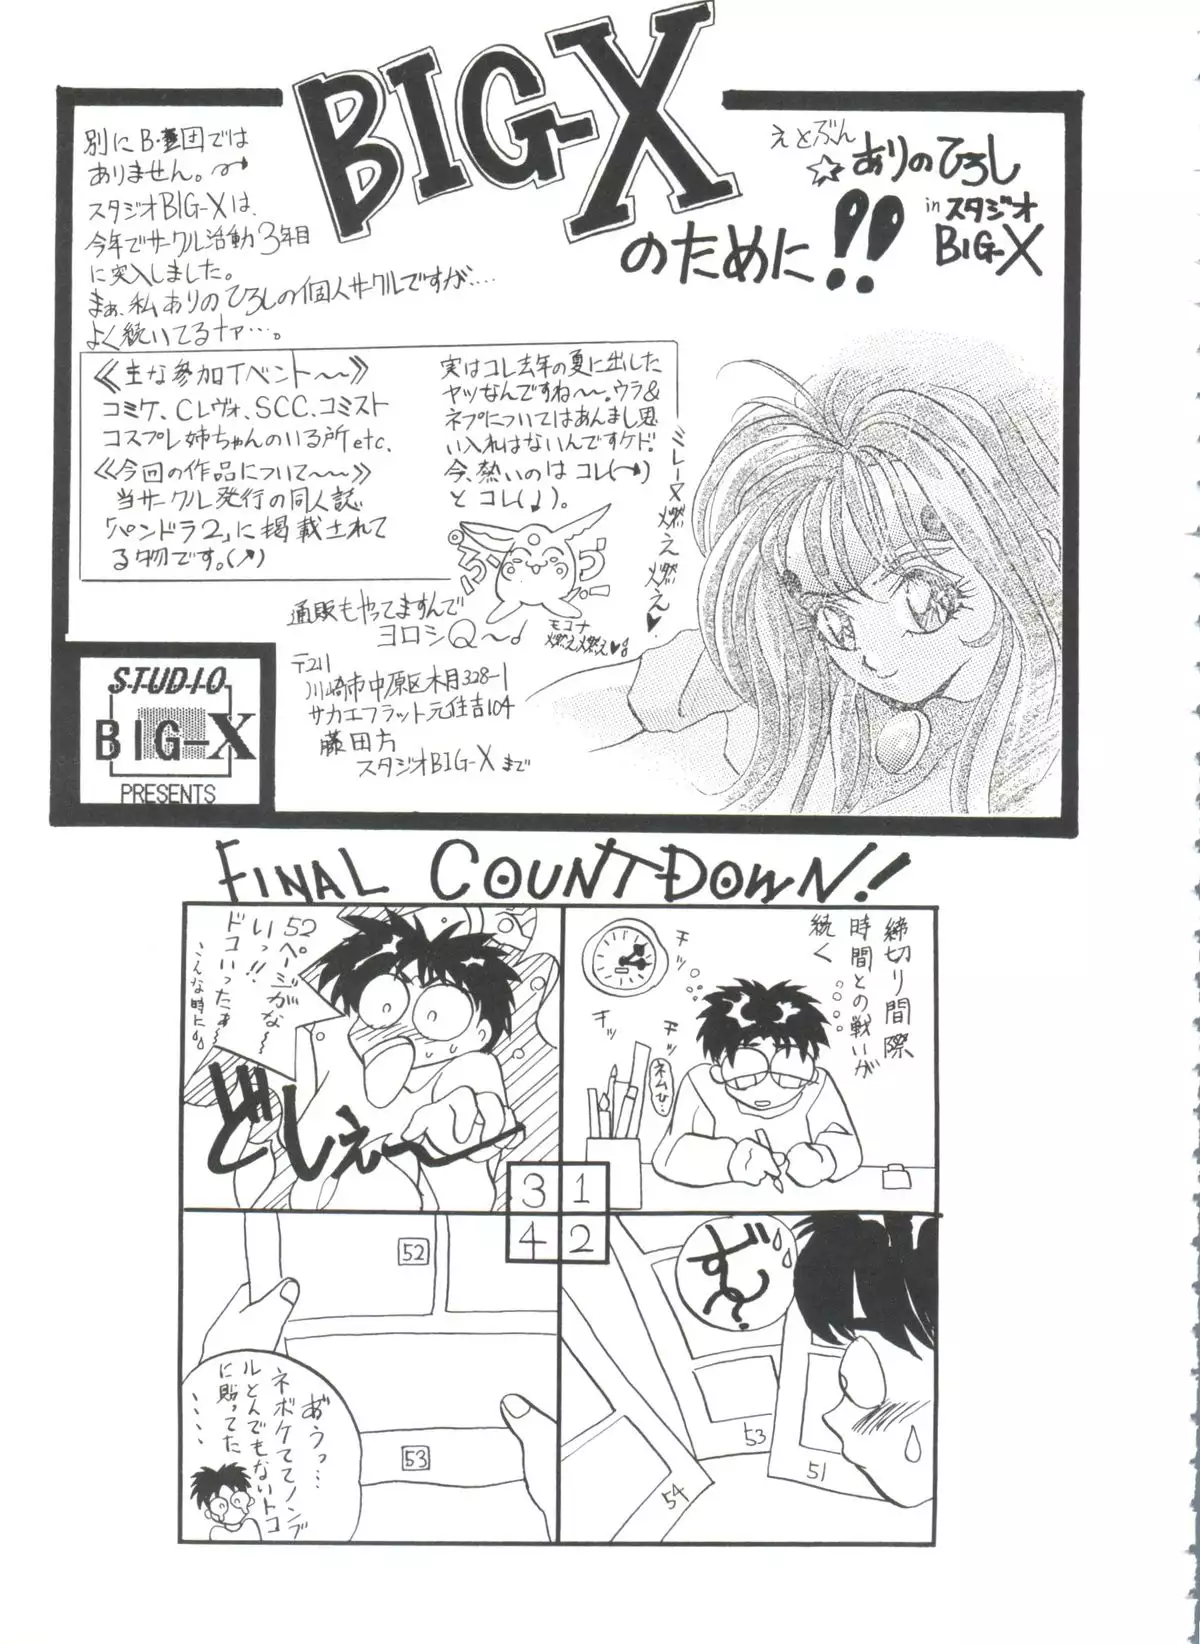 BIG-X
のために!!
えとぶん
☆ありのひろし
in スタジオ
BIG-X
別にB・団では
ありません。
スタジオBIG-Xは、
今年でサークル活動3年目
に突入しました。
まぁ、私ありのひろしの個人サークルですが....
よく続いてるナァ…。
《主な参加イベント~~》
コミケ、Cレヴォ、SCC、コミスト
コスプレ姉ちゃんのいる所etc.
《今回の作品について~~》
当サークル発行の同人誌
「パンドラ2」に掲載されて
る物です。(↗)
実はコレ去年の夏に出した
ヤツなんですね~~。ウラ&
ネプについてはあんまし思
い入れはないんですケド。
今、熱いのはコレ(→)
とコレ(↓)。
ミレーヌ燃え燃え♥
ぷ
う
ぷー
モコナ
燃え燃え♥
通販もやってますんで
ヨロシQ~♪
〒211
川崎市中原区木月328-1
サカエフラット元住吉104
藤田方
スタジオBIG-Xまで
STUDIO
BIG-X
PRESENTS
FINAL COUNTDOWN!
締切り間際
時間との戦いが
続く
チッ
チッ
チッ
チッ
ネムひ…
1
2
3
4
53
51
54
52ページがな
いっ!!
ドコいったぁ~
~こんな時に
どしぇ~
52
53
あうっ…
ネボケててノンブ
ルとんでもないトコ
に貼ってた